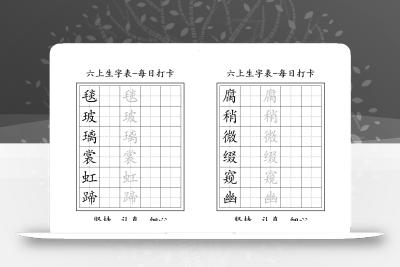 六上生字表-每日打卡
毯 毯
玻 玻
璃 璃
裳 裳
虹 虹
蹄 蹄
坚持 认真
六上生字表-每日打卡
腐 腐
稍 稍
微 微
缀 缀
窥 窥
幽 幽
坚持 认真